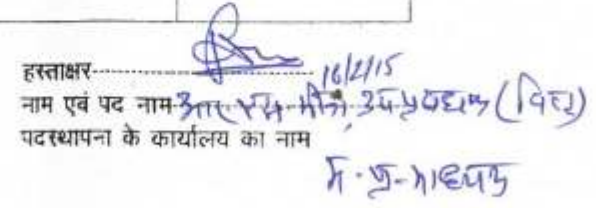 हस्ताक्षर 16/2/15
नाम एवं पद नाम आर एस मीना, उप प्रबंधक (वित्त)
पदस्थापना के कार्यालय का नाम
म.प्र. माध्यम